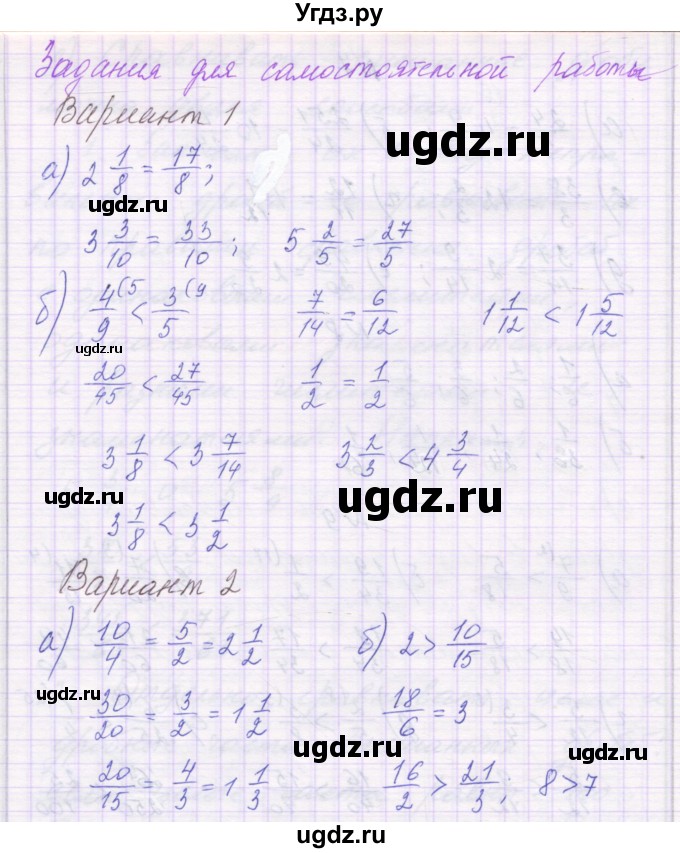 Угдз.ру
Задания для самостоятельной работы
Вариант 1
ugdz.ru
а) 2 1/8 = 17/8;
ugdz.ru
3 3/10 = 33/10; 5 2/5 = 27/5
б) 4/9 (5 < 3/5 (9 7/14 = 6/12 1 1/12 < 1 5/12
ugdz.ru
20/45 < 27/45 1/2 = 1/2
3 1/8 < 3 7/14 3 2/3 < 4 3/4
ugdz.ru ugdz.ru
3 1/8 < 3 1/2
Вариант 2
а) 10/4 = 5/2 = 2 1/2 б) 2 > 10/15
ugdz.ru
30/20 = 3/2 = 1 1/2 18/6 = 3
ugdz.ru ugdz.ru
20/15 = 4/3 = 1 1/3 16/2 > 21/3; 8 > 7
ugdz.ru